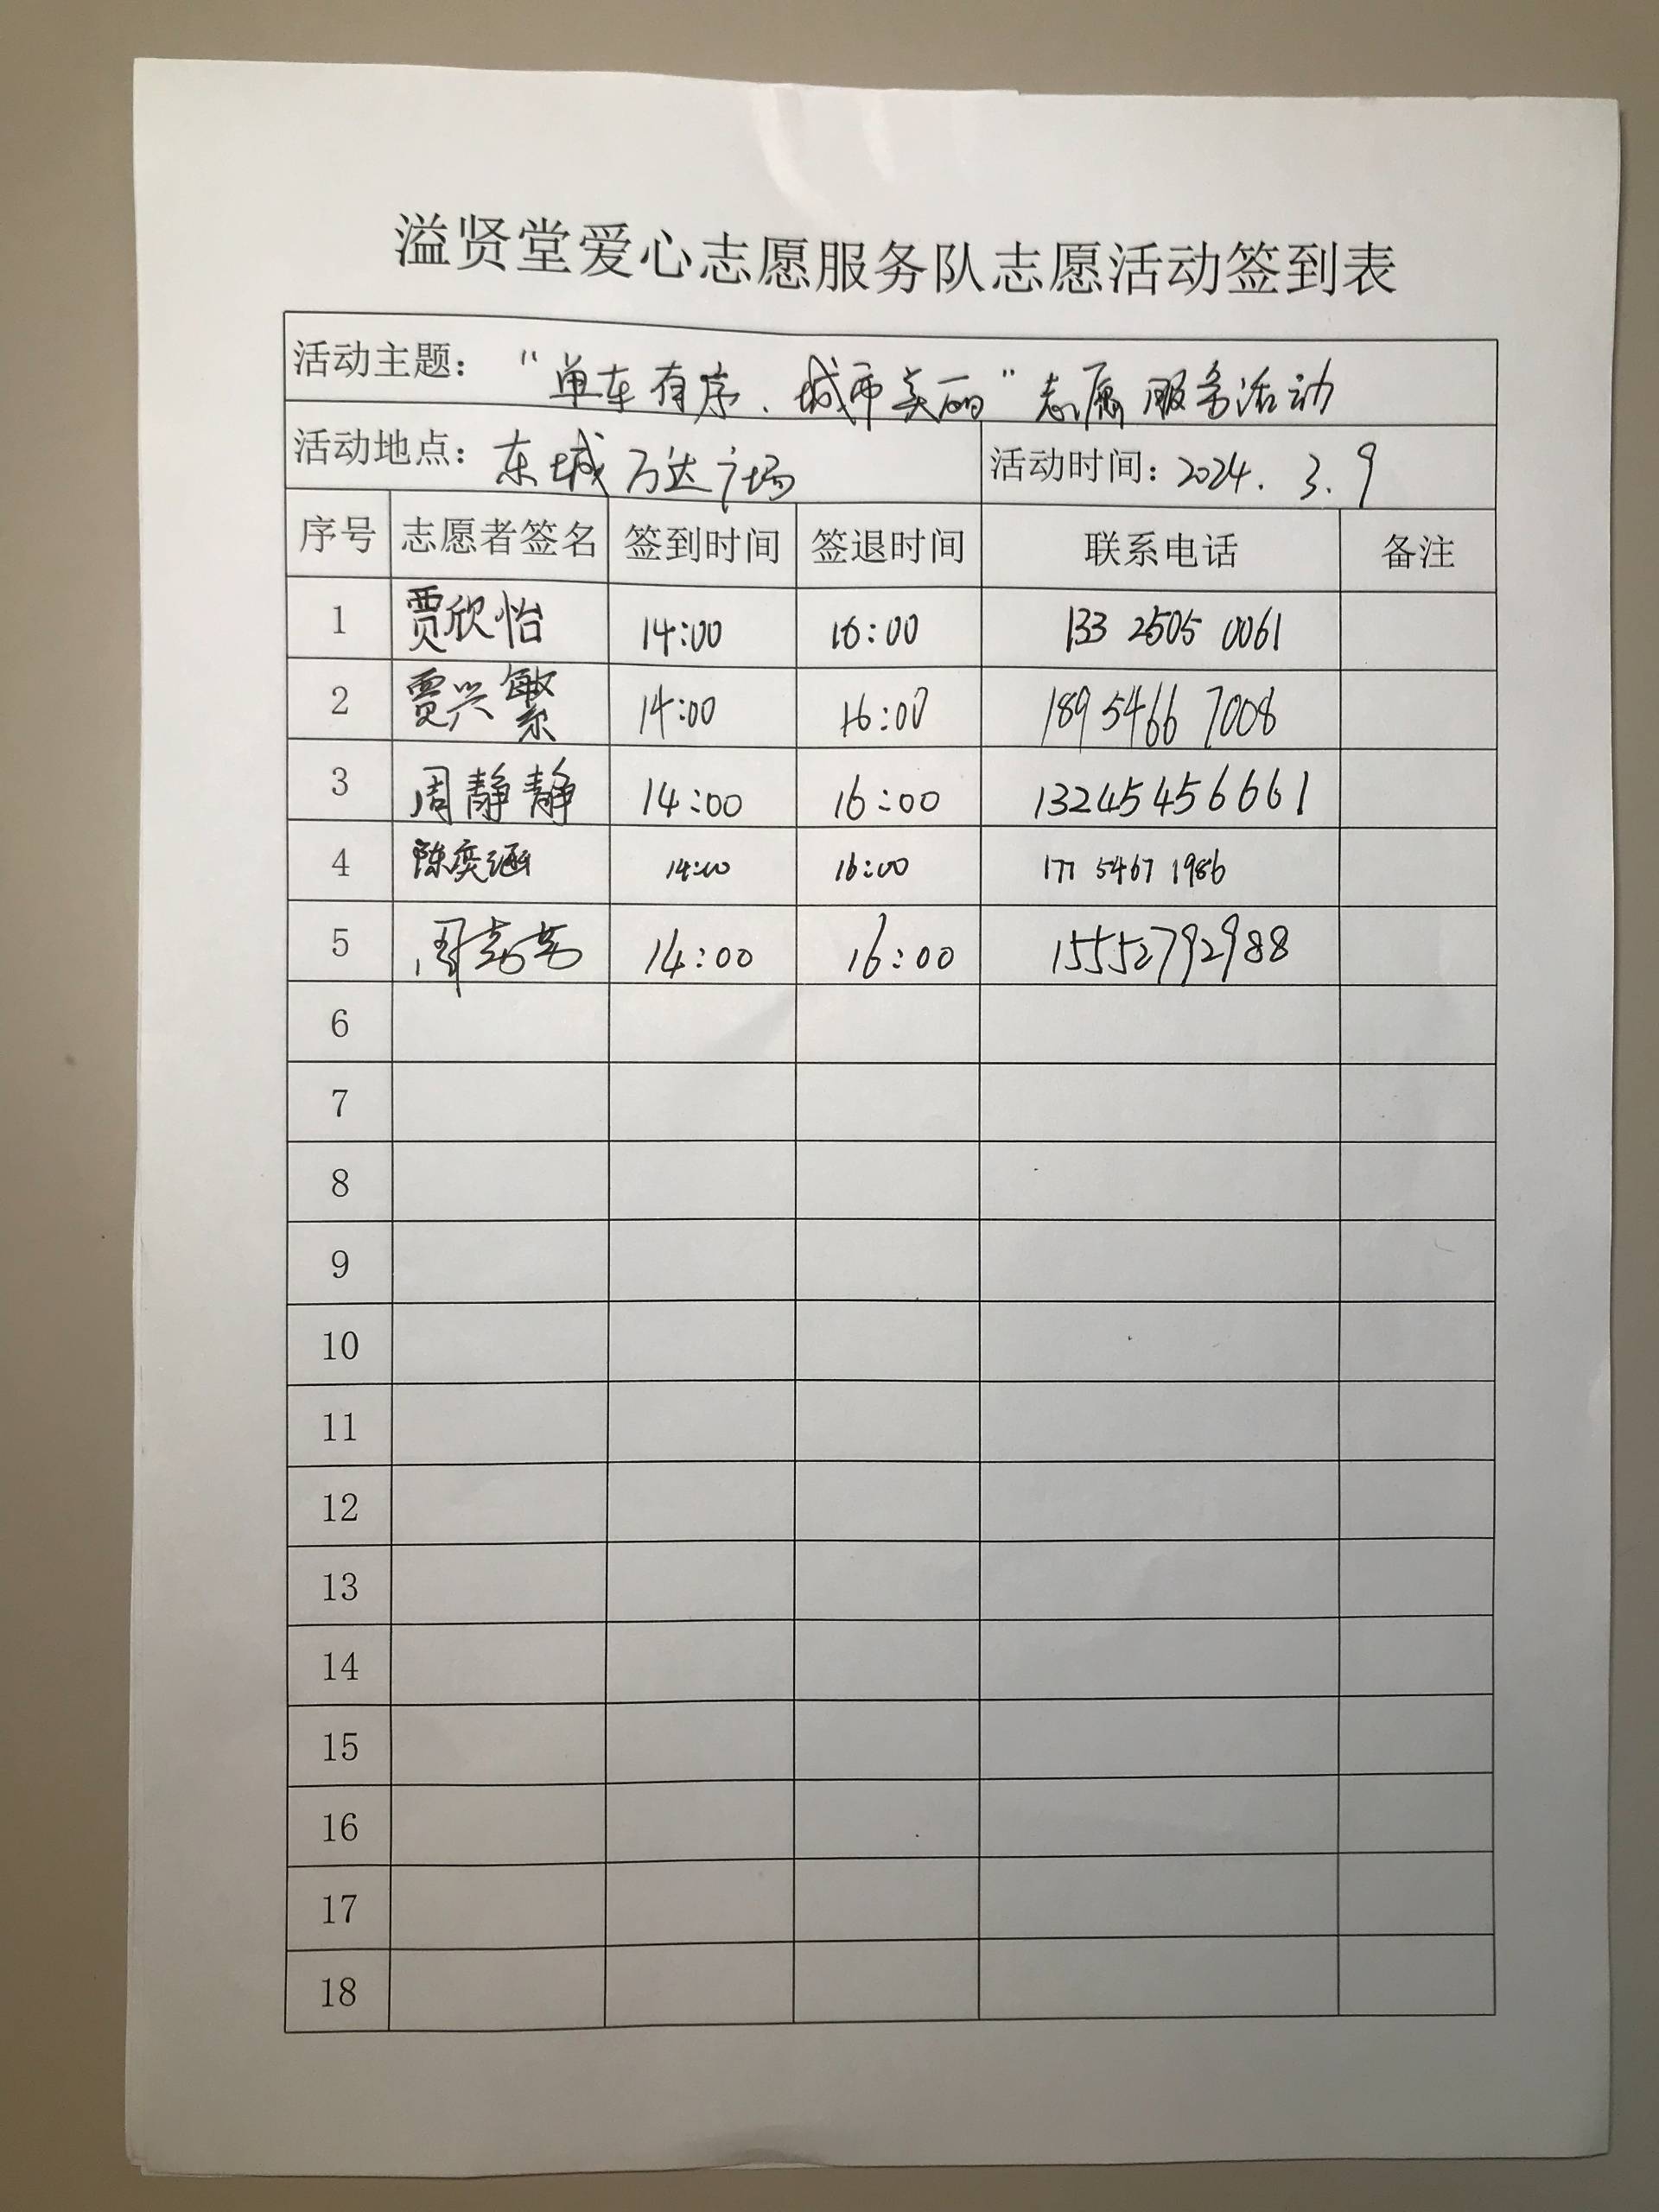 溢贤堂爱心志愿服务队志愿活动签到表
活动主题： “单车有序、城市美丽”志愿服务活动
活动地点： 东城万达广场 活动时间：2024. 3. 9
序号 志愿者签名 签到时间 签退时间 联系电话 备注
1 贾欣怡 14:00 16:00 133 2505 0061
2 贾兴繁 14:00 16:00 189 5466 7008
3 周静静 14:00 16:00 13245456661
4 陈奕涵 14:00 16:00 177 5467 1986
5 14:00 16:00 15552792988
6
7
8
9
10
11
12
13
14
15
16
17
18